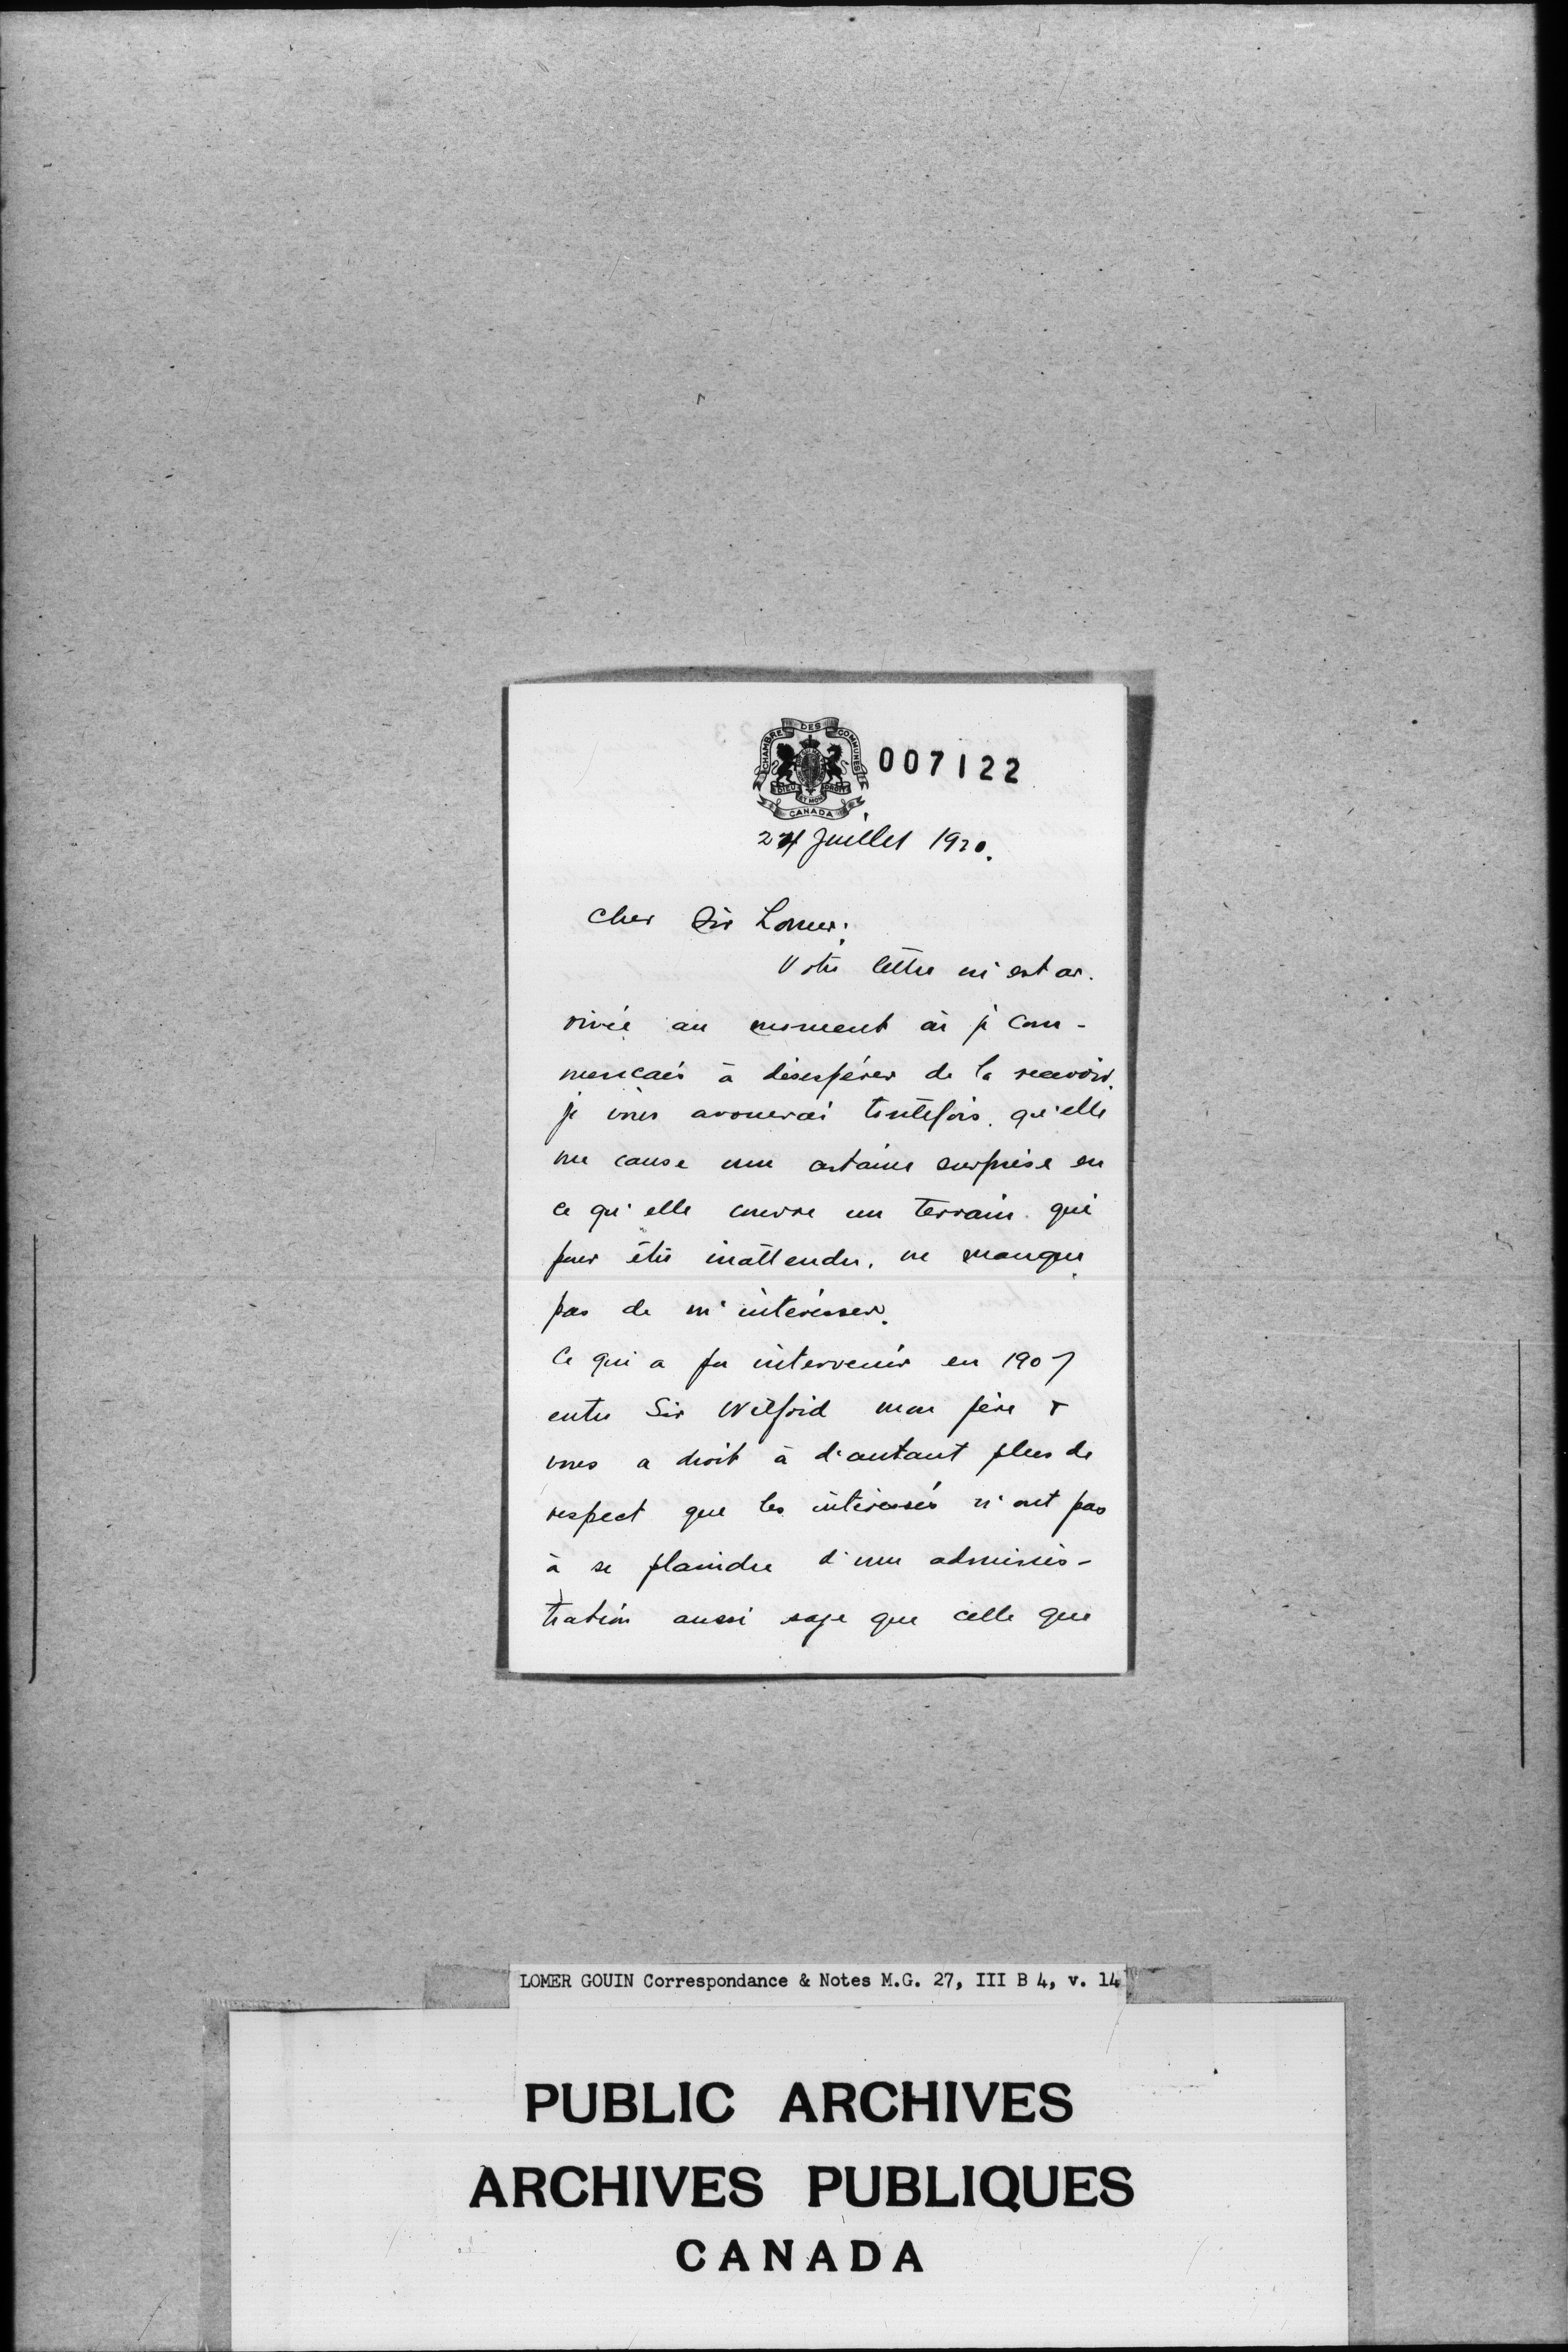 CHAMBRE DES COMMUNES
DIEU ET MON DROIT
CANADA
007122
24 Juillet 1920.
Cher Sir Lomer:
Votre lettre m'est ar-
rivée au moment où je com-
mencais à désespérer de la recevoir.
je vous avouerai toutefois qu'elle
me cause une certaine surprise en
ce qu'elle couvre un terrain qui
pour être inattendu, ne manque
pas de m'intéresser.
Ce qui a pu intervenir en 1907
entre Sir Wilfrid mon père &
vous a droit à d'autant plus de
respect que les intéressés n'ont pas
à se plaindre d'une adminis-
tration aussi sage que celle que
LOMER GOUIN Correspondance & Notes M.G. 27, III B 4, v. 14
PUBLIC ARCHIVES
ARCHIVES PUBLIQUES
CANADA